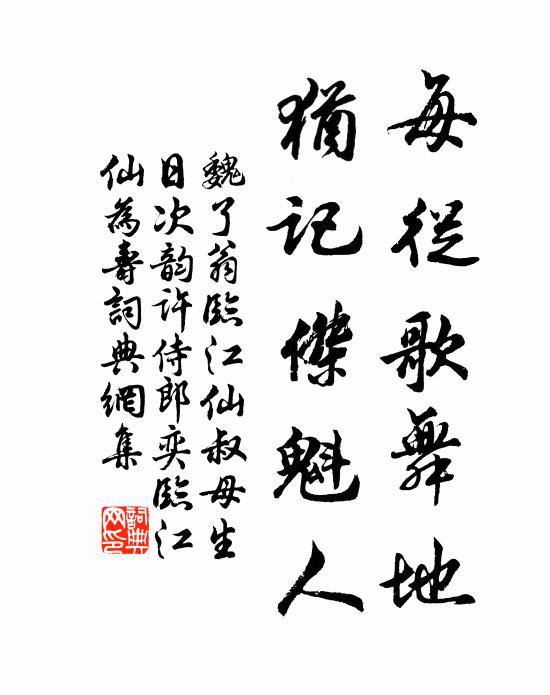 每從歌舞地
猶記傑魁人
魏了翁臨江仙叔母生
日次韵許侍郎奕臨江
仙為壽詞典網集
詞典網印